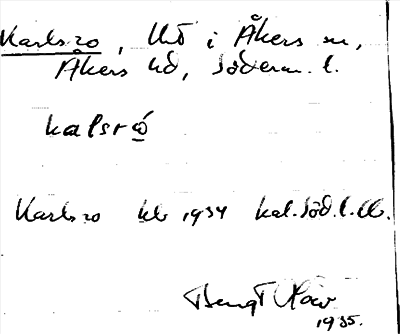 Karlsro, i Åkers sn,
Åkers hd, Söderm. l.
kalsró
Karlsro 1934 kal. Söd. l.
Bengt
1935.